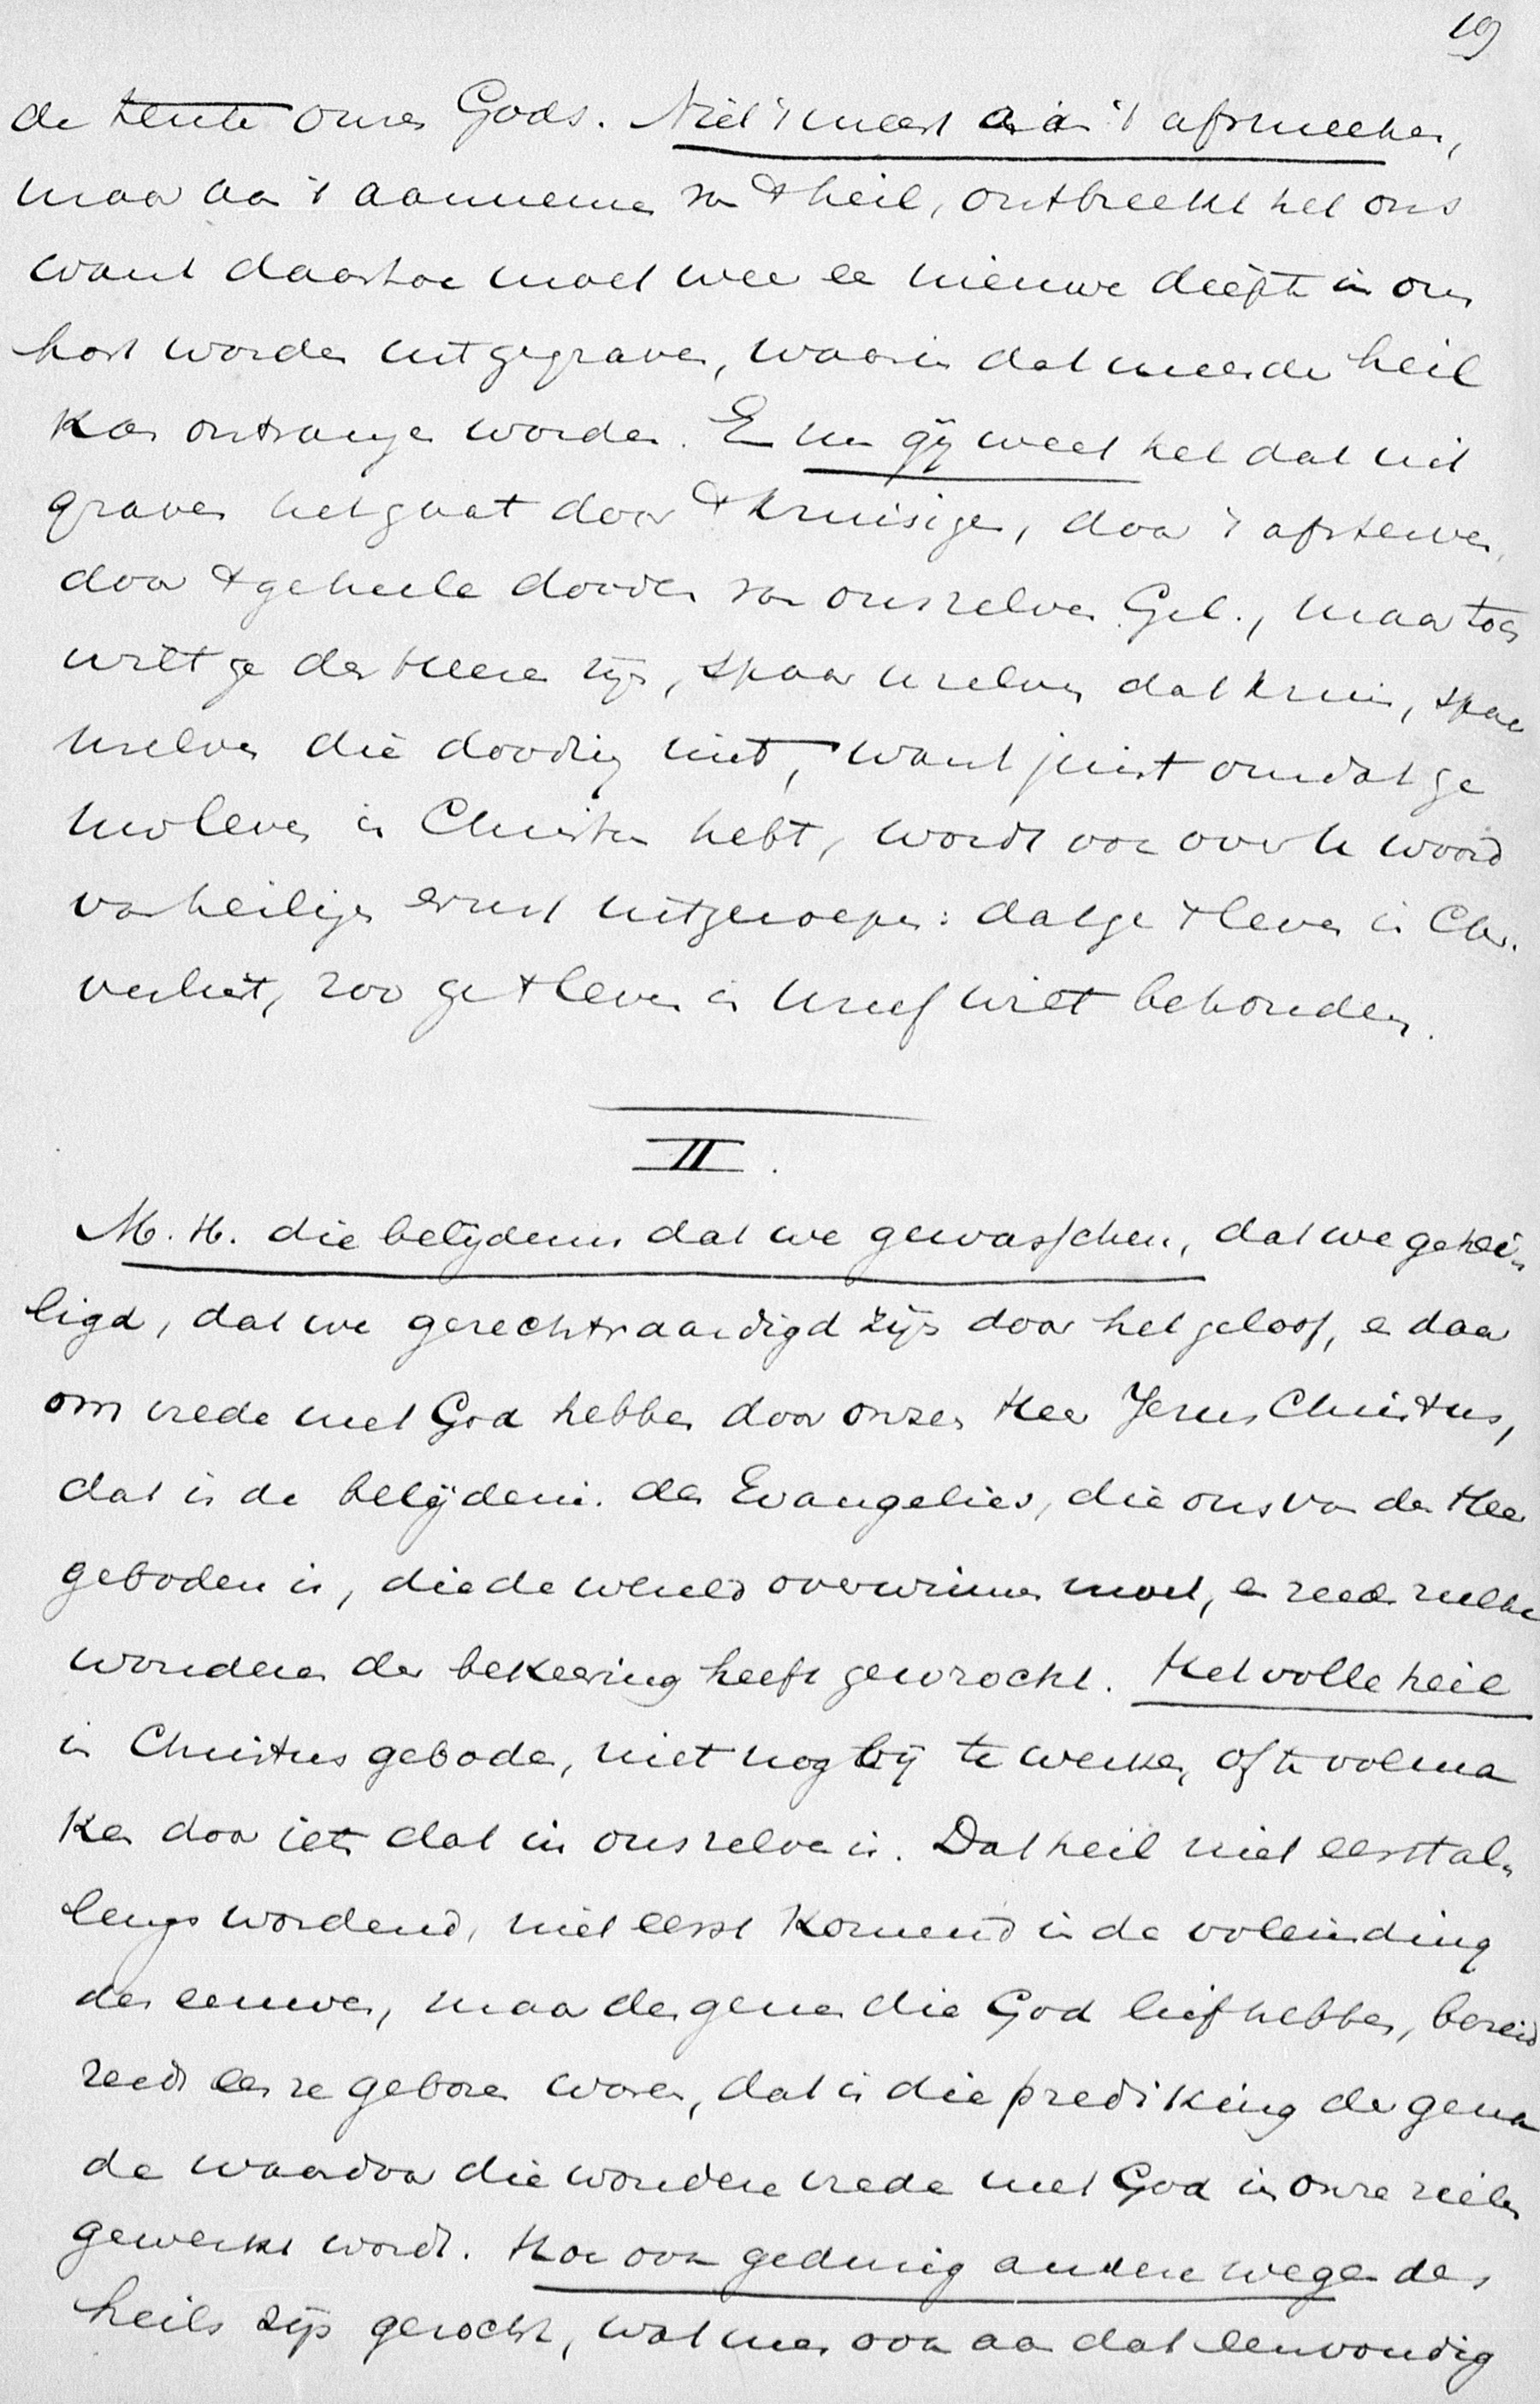 19
de tente onzes Gods. Niet 't meest aan 't afsmeeken,
maar aan 't aannemen van 't heil, ontbreekt het ons
want daartoe moet weer een nieuwe diepte in ons
hart worden uitgegraven, waarin dat meerder heil
kan ontvangen worden. En nu gij weet het dat uit
graven het gaat door 't kruisigen, door 't afsterven,
door 't geheele dooden van onszelven Gel., maar toch
wilt ge des Heeren zijn, spaar uzelven dat kruis, spaar
uzelven die dooding niet, want juist omdat ge
uw leven in Christus hebt, wordt ook over u 't woord
van heiligen ernst uitgeroepen: dat ge 't leven in Chr.
verliest, zoo ge 't leven in uzelf wilt behouden.
II.
M. H. die belijdenis dat we gewasschen, dat we gehei-
ligd, dat we gerechtvaardigd zijn door het geloof, en daar
om vrede met God hebben door onzen Heer Jezus Christus,
dat is de belijdenis des Evangelies, die ons van den Heer
geboden is, die de wereld overwinnen moet, en reeds zulke
wonderen der bekeering heeft gewrocht. Het volle heil
in Christus geboden, niet nog bij te werken, of te volma
ken door iets dat in onszelven is. Dat heil niet eerst al-
lengs wordend, niet eerst komend in de voleinding
der eeuwen, maar dengenen die God liefhebben, bereid
reeds eer ze geboren waren, dat is die prediking der gena
de waardoor die wondere vrede met God in onze zielen
gewerkt wordt. Hoe ook gedurig andere wegen des
heils zijn gezocht, wat men ook aan dat eenvoudig